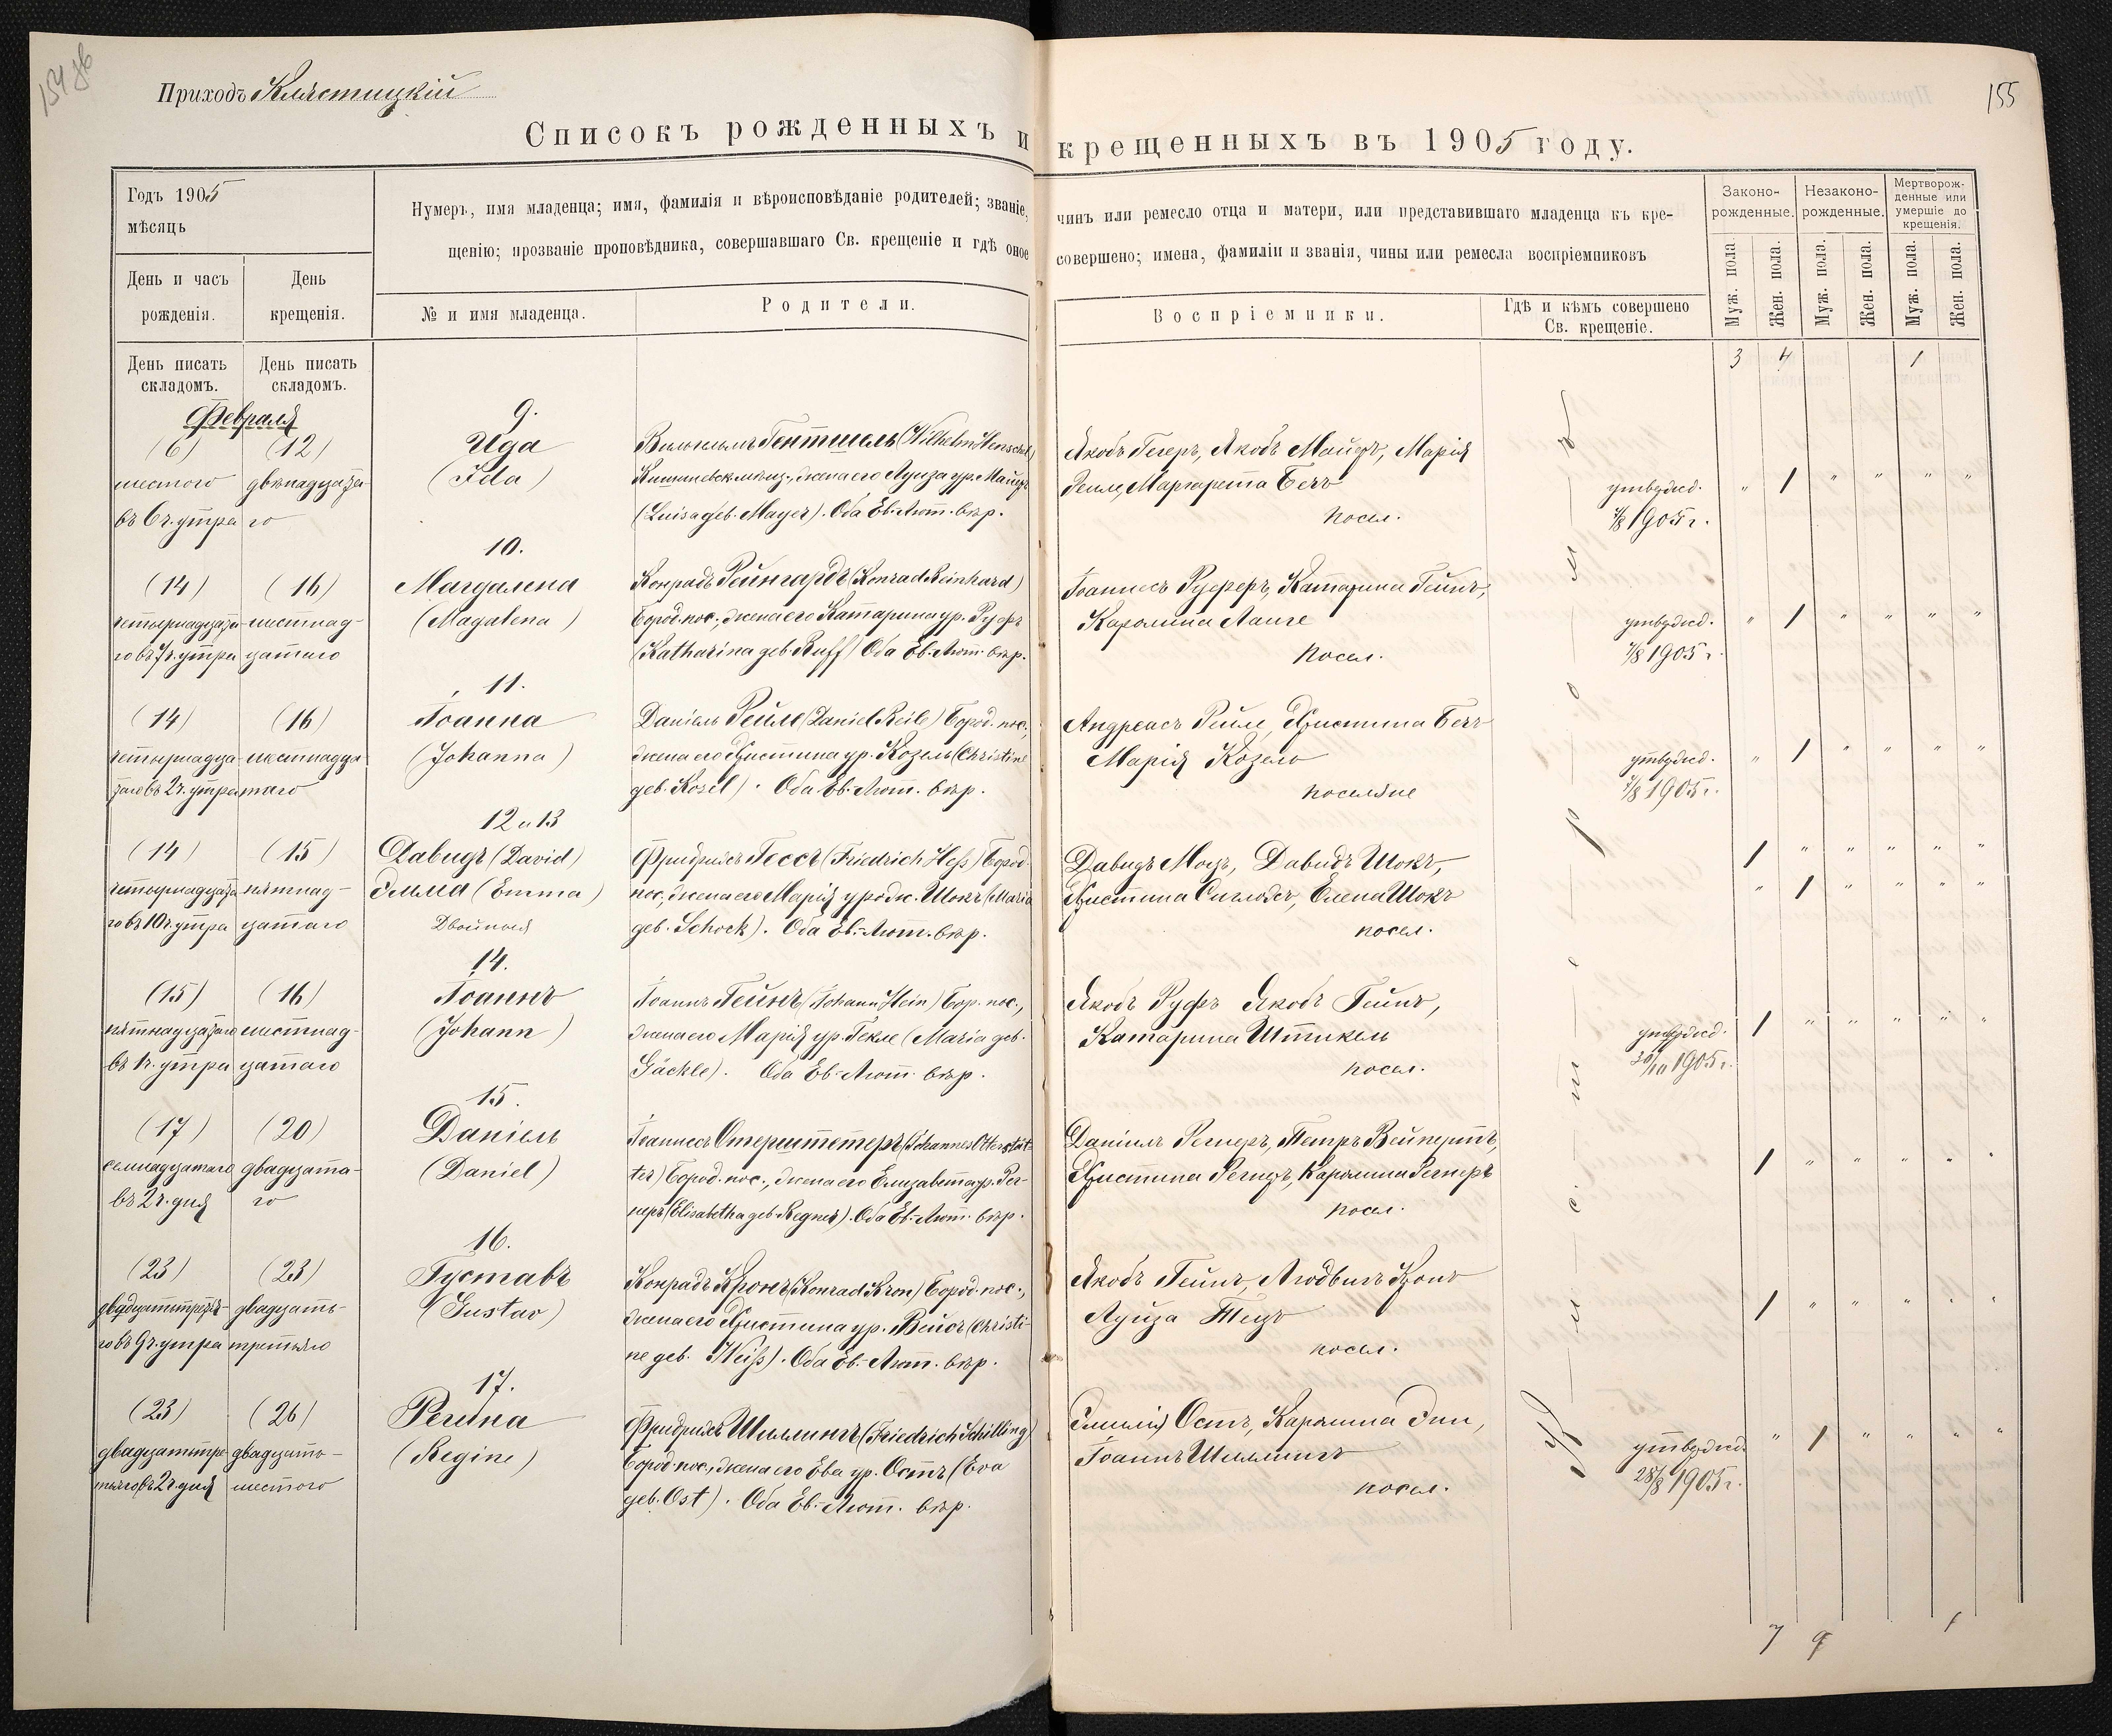 154 об
155
Приходъ Клястицкій
Списокъ рожденныхъ и крещенныхъ въ 1905 году.
Годъ 1905
мѣсяць
Нумеръ, имя младенца; имя, фамилія и вѣроисповѣданіе родителей; званіе, чинъ или ремесло отца и матери, или представившаго младенца къ кре-
щенію; прозваніе проповѣдника, совершавшаго Св. крещеніе и гдѣ оное совершено; имена, фамиліи и званія, чины или ремесла воспріемниковъ
Законо-
рожденные.
Незаконо-
рожденные.
Мертворож-
денные или
умершіе до
крещенія.
День и часъ
рожденія.
День
крещенія.
№ и имя младенца.
Родители.
Воспріемники.
Гдѣ и кѣмъ совершено
Св. крещеніе.
Муж. пола.
Жен. пола.
Муж. пола.
Жен. пола.
Муж. пола.
Жен. пола.
День писать
складомъ.
День писать
складомъ.
3 4 1
Февраля
(6)
шестого
въ 6 ч. утра
(12)
двѣнадцата-
го
9.
Ида
(Ida)
Вильгельмъ Гентшель (Wilhelm Henschel)
Кишиневск. мѣщ., жена его Луиза ур. Майеръ
(Luisa geb. Mayer). Оба Ев. Лют. вѣр.
Якобъ Гегеръ, Якобъ Майеръ, Марія
Рейле, Маргарета Бечъ
посел.
утвержд.
1905 г.
" 1 " " " "
(14)
четырнадцата-
го въ 7 ч. утра
(16)
шестнад-
цатаго
10.
Магдалена
(Magdalena)
Конрадъ Рейнгардъ (Konrad Reinhard)
Бород. пос., жена его Катарина ур. Руфъ
(Katharina geb. Ruff) Оба Ев. Лют. вѣр.
Іоаннесъ Руферъ, Катарина Гейнъ,
Каролина Ланге
посел.
утвержд.
1905 г.
" 1 " " " "
(14)
четырнадца-
таго въ 2 ч. утра
(16)
шестнадца
таго
11.
Іоанна
(Johanna)
Даніель Рейле (Daniel Reile) Бород. пос.,
жена его Христина ур. Козель (Christine
geb. Kosel). Оба Ев. Лют. вѣр.
Андреасъ Рейле, Христина Бечъ
Марія Козель
поселяне
утвержд.
1905 г.
" 1 " " " "
(14)
четырнадцата
го въ 10 ч. утра
(15)
пятнад-
цатаго
12 и 13
Давидъ (David)
Эмма (Emma)
Двойныя
Фридрихъ Гессъ (Friedrich Heß) Бород.
пос., жена его Марія урожд. Шокъ (Maria
geb. Schock). Оба Ев.-Лют. вѣр.
Давидъ Моцъ, Давидъ Шокъ,
Христина Сиглохъ, Елена Шокъ
посел.
1 " " " " "
" 1 " " " "
(15)
пятнадцатаго
въ 1 ч. утра
(16)
шестнад-
цатаго
14.
Іоаннъ
(Johann)
Іоаннъ Гейнъ (Johann Hein) Бор. пос.,
жена его Марія ур. Гекле (Maria geb.
Gäckle). Оба Ев.-Лют. вѣр.
Якобъ Руфъ Якобъ Гейнъ,
Катарина Штикель
посел.
утвержд.
1905 г.
1 " " " " "
(17)
семнадцатаго
въ 2 ч. дня
(20)
двадцата-
го
15.
Даніель
(Daniel)
Іоаннесъ Отерштетеръ (Johannes Otterstät-
ter) Бород. пос., жена его Елизавета ур. Рег-
неръ (Elisabetha geb. Regner). Оба Ев.-Лют. вѣр.
Даніилъ Регнеръ, Петръ Вейнертъ,
Христина Регнеръ, Каролина Регнеръ
посел.
1 " " " " "
(23)
двадцатьтретья-
го въ 9 ч. утра
(23)
двадцать-
третьяго
16.
Густавъ
(Gustav)
Конрадъ Кронъ (Konrad Kron) Бород. пос.,
жена его Христина ур. Вейсъ (Christi-
ne geb. Weiß). Оба Ев.-Лют. вѣр.
Якобъ Гейнъ, Людвигъ Кронъ
Луиза Тецъ
посел.
1 " " " " "
(23)
двадцатьтре-
тьяго въ 2 ч. дня
(26)
двадцать-
шестого
17.
Регина
(Regine)
Фридрихъ Шиллингъ (Friedrich Schilling)
Бород. пос., жена его Ева ур. Остъ (Eva
geb. Ost). Оба Ев.-Лют. вѣр.
Эмилія Остъ, Каролина Энни,
Іоаннъ Шиллингъ
посел.
утвержд.
28/8 1905 г.
" 1 " " " "
7 9 1